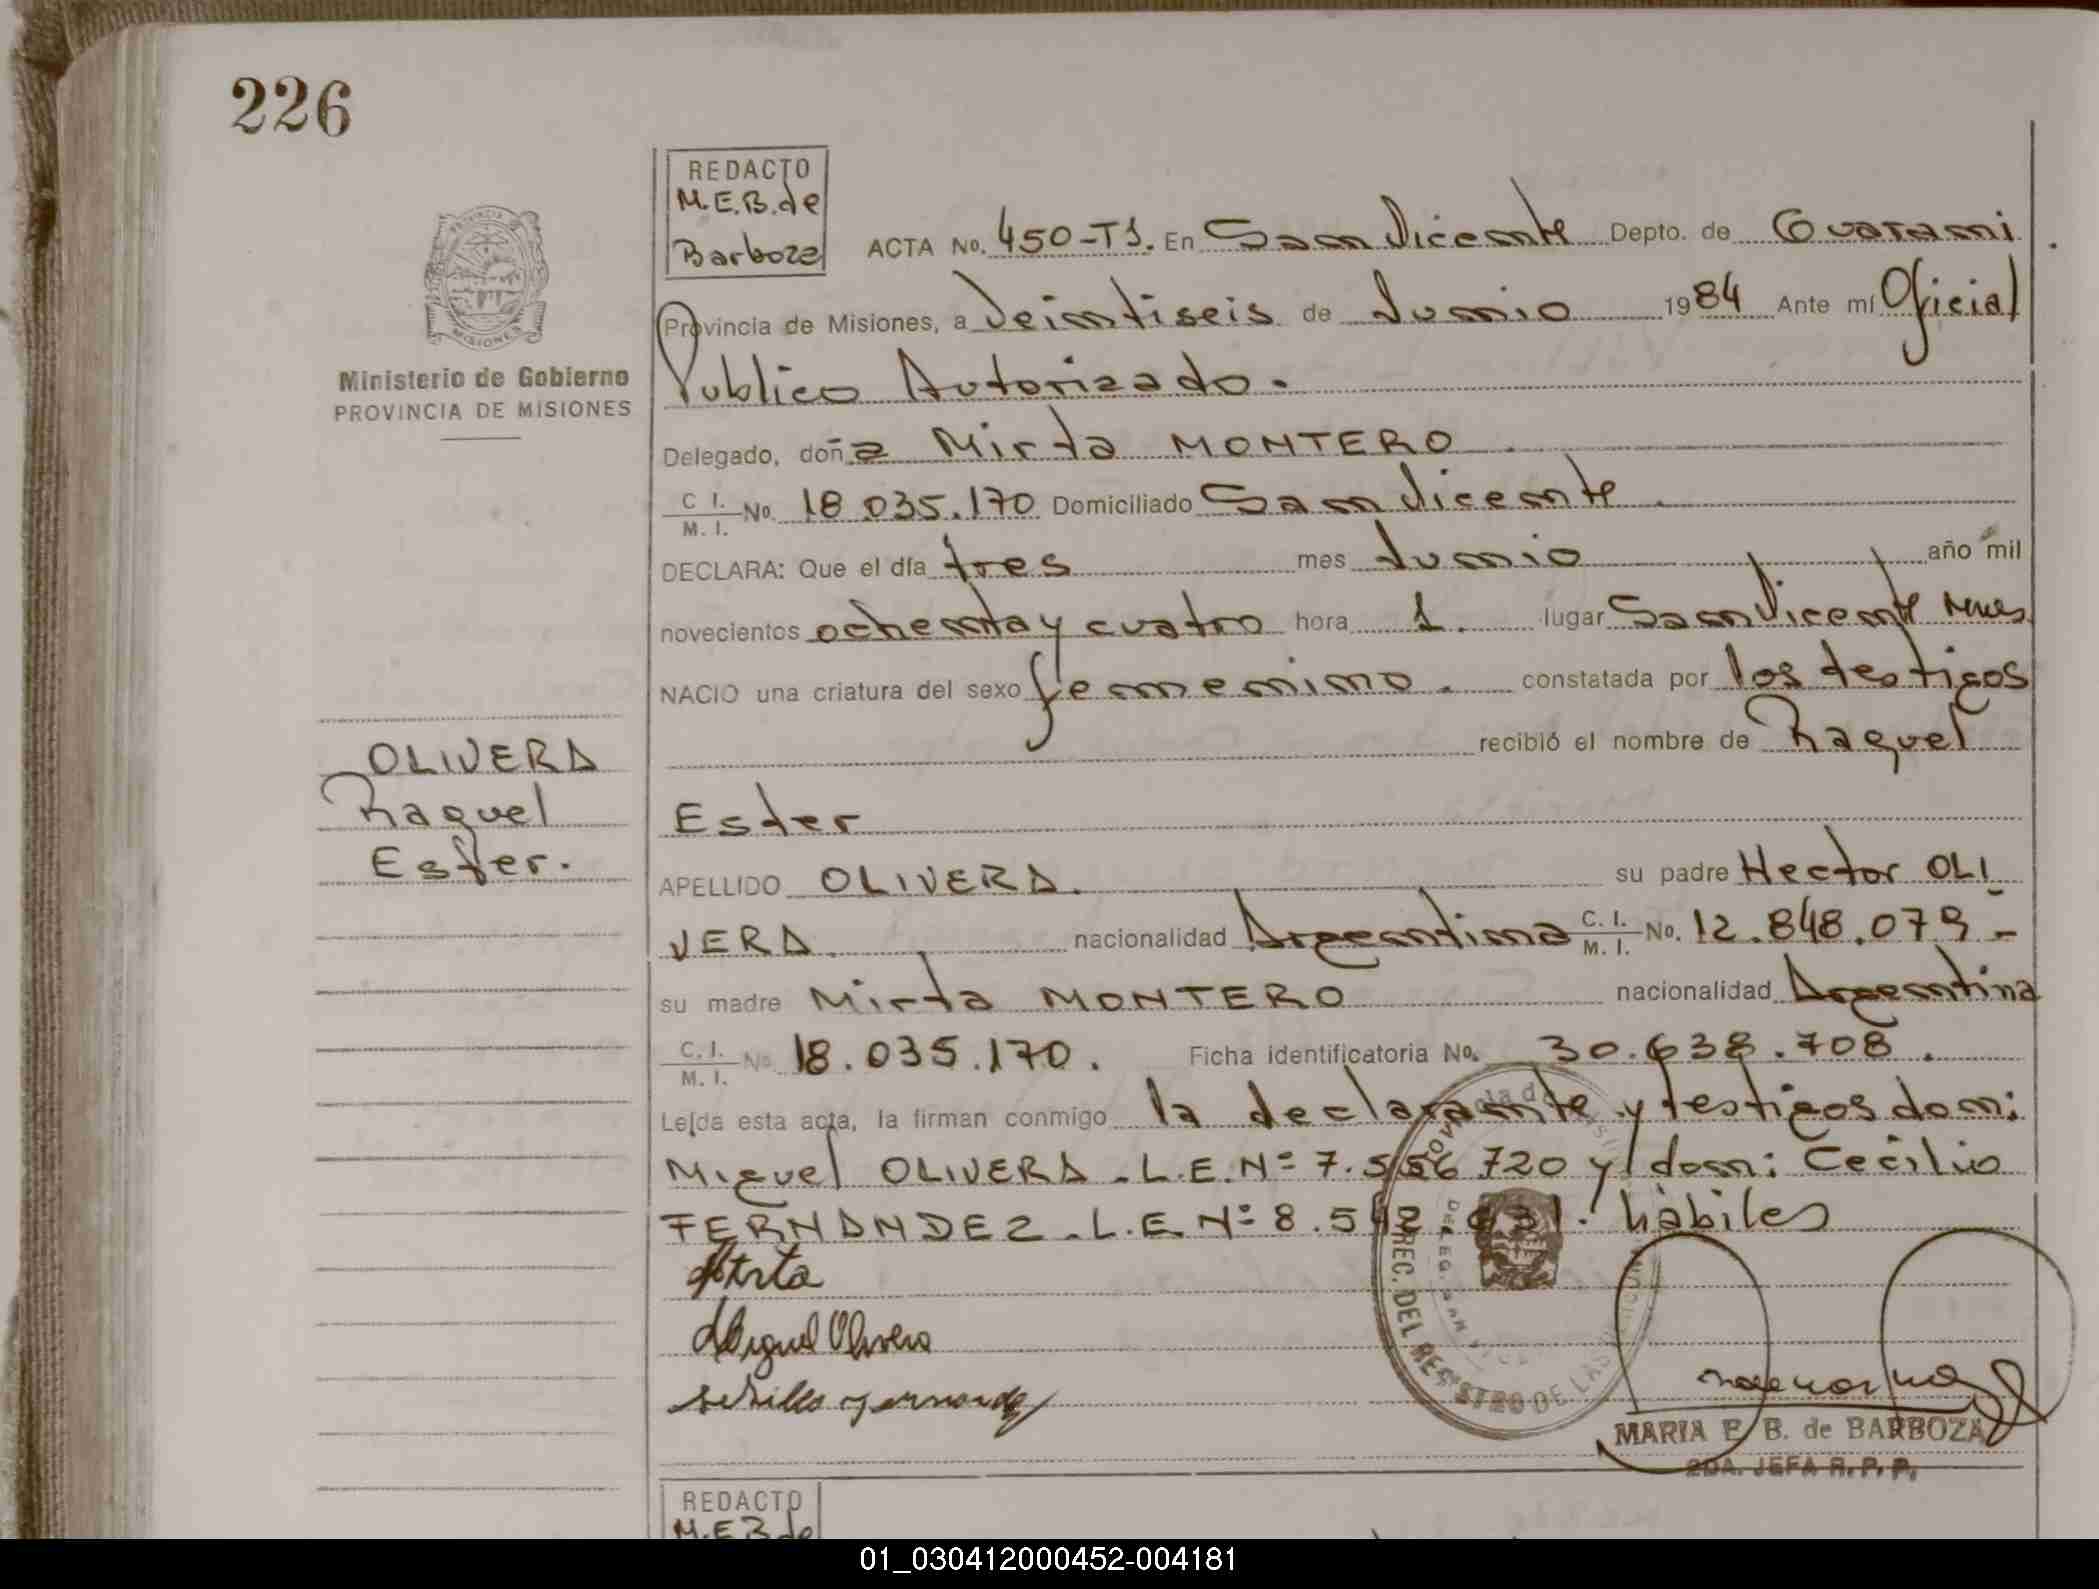 226
REDACTO
M.E.B.de
Barboza
ACTA No. 450-T1. En San Vicente Depto. de Guarani.
Provincia de Misiones, a Veintiseis de Junio 1984 Ante mí Oficial
Publico Autorizado.
Delegado, doña Mirta MONTERO
C I. M. I. No. 18.035.170 Domiciliado San Vicente.
DECLARA: Que el día tres mes Junio año mil
novecientos ochenta y cuatro hora 1. lugar San Vicente Mnes
NACIO una criatura del sexo femenino. constatada por los testigos
recibió el nombre de Raquel
Ester
APELLIDO OLIVERA. su padre Hector OLI
VERA. nacionalidad Argentina C. I. M. I. No. 12.848.079.-
su madre Mirta MONTERO nacionalidad Argentina
C. I. M. I. No. 18.035.170. Ficha identificatoria No. 30.638.708.
Leída esta acta, la firman conmigo la declarante y testigos don:
Miguel OLIVERA. L.E.Nº 7.556 720 y don: Cecilio
FERNANDEZ. L.E. Nº 8.542. hábiles
Mirta
Miguel Olivera
MARIA E. B. de BARBOZA
2DA. JEFA R. P. P.
PROVINCIA DE
MISIONES
Ministerio de Gobierno
PROVINCIA DE MISIONES
OLIVERA
Raquel
Ester.
DIREC. DEL REGISTRO DE LAS
DELEG. SAN
REDACTO
M.E.B.de
01_030412000452-004181